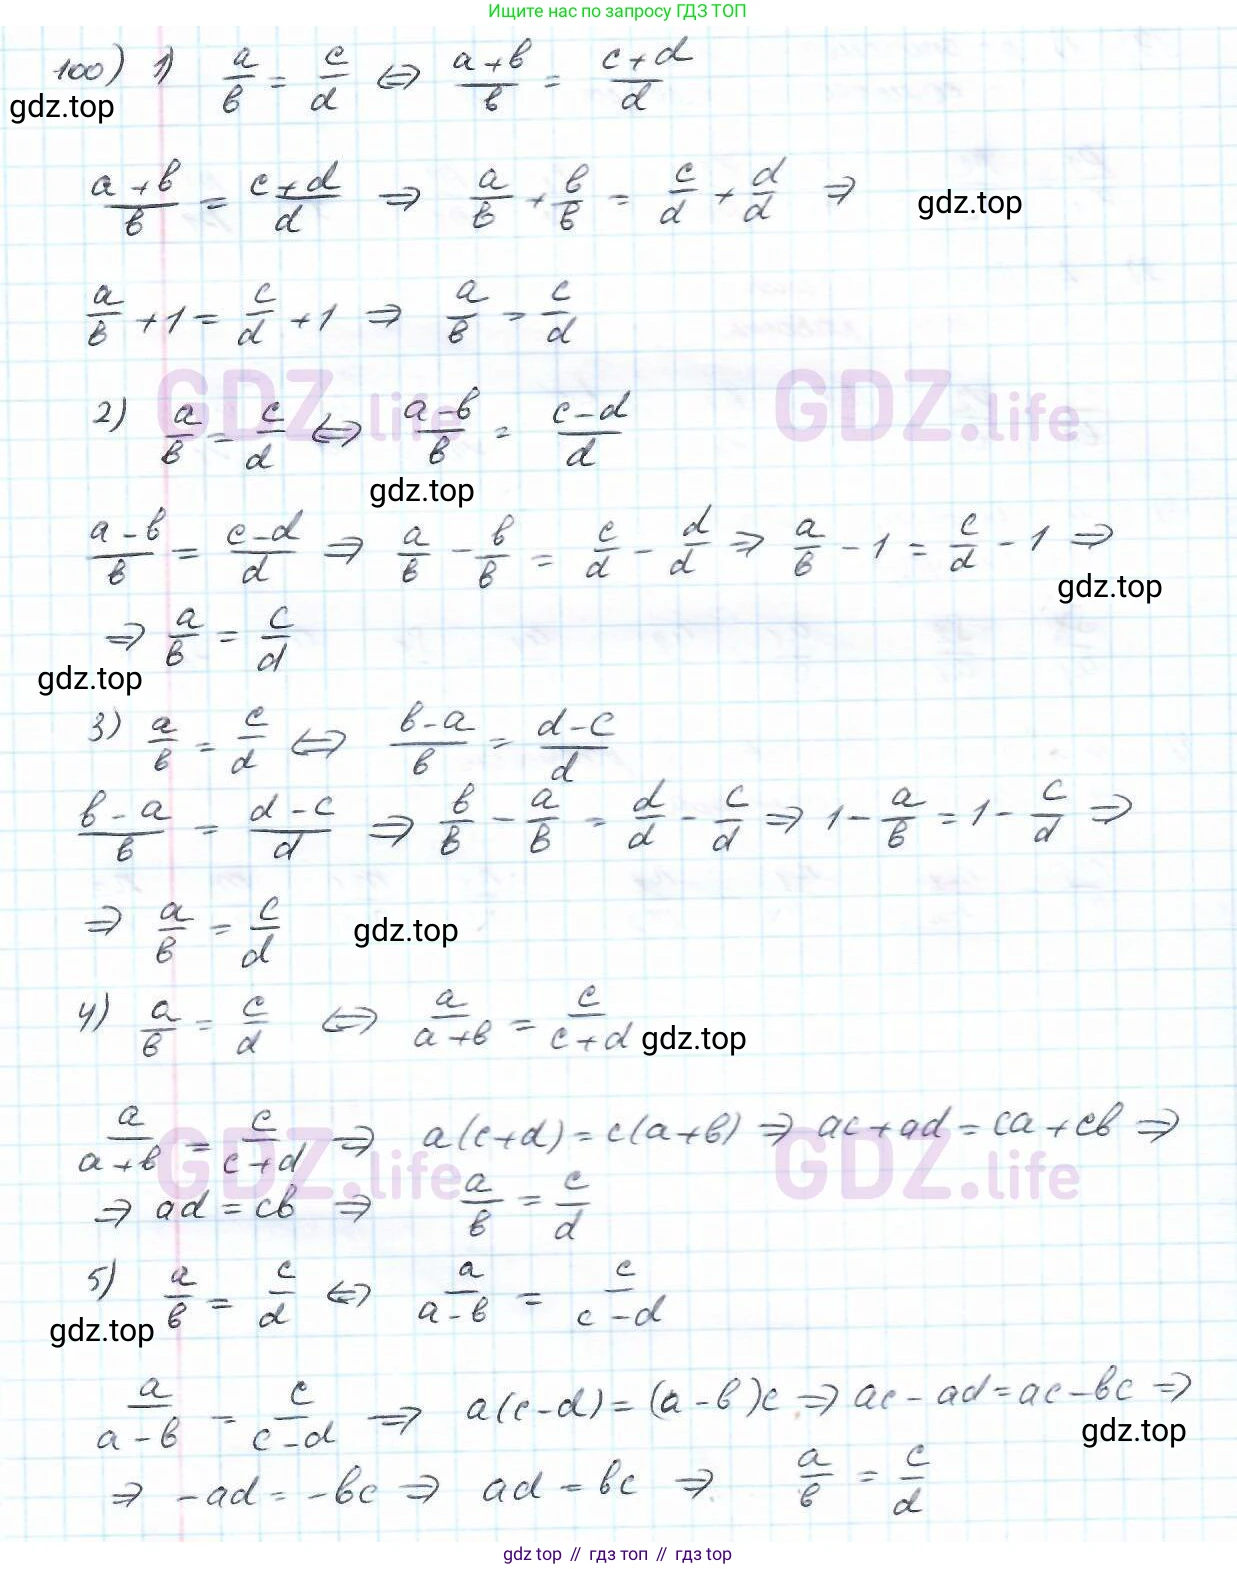 Ищите нас по запросу ГДЗ ТОП
100) 1) a/b = c/d ⇔ (a+b)/b = (c+d)/d
gdz.top
(a+b)/b = (c+d)/d ⇒ a/b + b/b = c/d + d/d ⇒
gdz.top
a/b + 1 = c/d + 1 ⇒ a/b = c/d
GDZ.life GDZ.life
2) a/b = c/d ⇔ (a-b)/b = (c-d)/d
gdz.top
(a-b)/b = (c-d)/d ⇒ a/b - b/b = c/d - d/d ⇒ a/b - 1 = c/d - 1 ⇒
gdz.top
⇒ a/b = c/d
gdz.top
3) a/b = c/d ⇔ (b-a)/b = (d-c)/d
(b-a)/b = (d-c)/d ⇒ b/b - a/b = d/d - c/d ⇒ 1 - a/b = 1 - c/d ⇒
⇒ a/b = c/d
gdz.top
4) a/b = c/d ⇔ a/(a+b) = c/(c+d)
gdz.top
a/(a+b) = c/(c+d) ⇒ a(c+d) = c(a+b) ⇒ ac+ad = ca+cb ⇒
GDZ.life GDZ.life
⇒ ad = cb ⇒ a/b = c/d
5) a/b = c/d ⇔ a/(a-b) = c/(c-d)
gdz.top
a/(a-b) = c/(c-d) ⇒ a(c-d) = (a-b)c ⇒ ac-ad = ac-bc ⇒
gdz.top
⇒ -ad = -bc ⇒ ad = bc ⇒ a/b = c/d
gdz top // гдз топ // гдз top